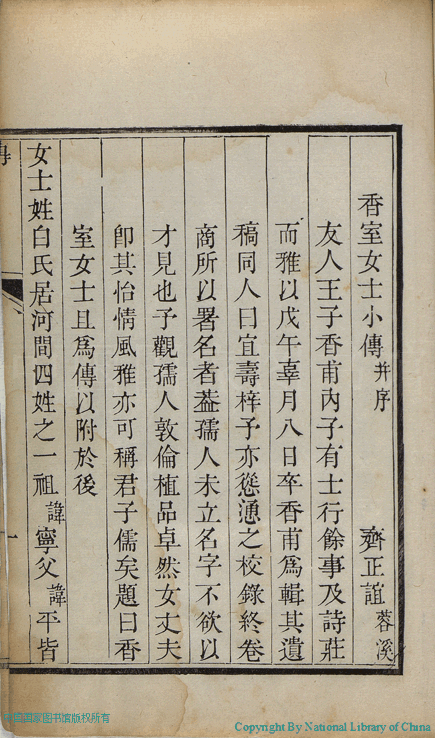 香室女士小傳 并序 齊正誼 蓉溪
友人王子香甫內子有士行餘事及詩莊
而雅以戊午辜月八日卒香甫爲輯其遺
稿同人曰宜壽梓予亦慫慂之校錄終卷
商所以署名者葢孺人未立名字不欲以
才見也予觀孺人敦倫植品卓然女丈夫
卽其怡情風雅亦可稱君子儒矣題曰香
室女士且爲傳以附於後
女士姓白氏居河間四姓之一祖 諱 寧父 諱 平皆
一
中国国家图书馆版权所有
Copyright By National Library of China